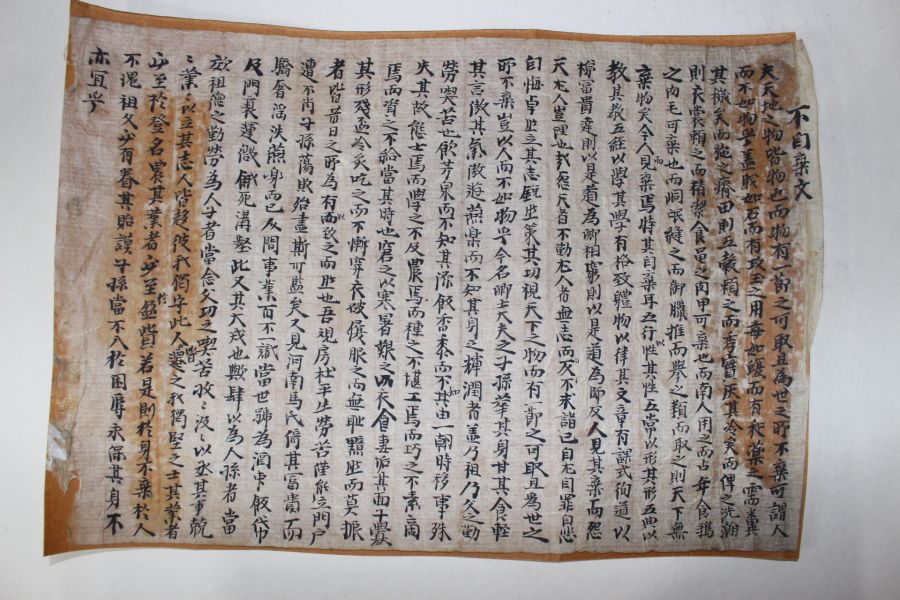 不自棄文
夫天地之物皆物也而物有一節之可取且爲世之所不棄可謂人
而不如物乎盖頑如石而有攻玉之用毒如蝮而有和藥之需糞
其穢矣而施之瘠田則五穀頼之而秀實灰其冷矣而俾之洗瀚
則衣裳頼之而精潔食黽之肉甲可棄也而南人用之而占年食鵝
之肉毛可棄也而峒氓縫之而御臘推而擧之類而取之則天下無
棄物矣今人而見棄焉特其自棄耳五行以性其性五常以形其形五典以
教其教五經以學其學有格致體物以律其文章有課式徇道以
榜富貴達則以是道爲卿相窮則以是道爲師友人見其棄而怨
天尤人豈理也哉怨天者不勤尤人者無志而反不求諸己自尤自罪自怨
自悔卓然立其志銳然策其功視天下之物而有一節之可取且爲世之
所不棄豈以人而不如物乎今名卿士大夫之子孫華其身甘其食輕
其言傲其氣傲遊燕樂而不知其身之棟潤者盖乃祖乃父之勤
勞喫苦也飮芳泉而不知其源飯香黍而不知其由一朝時移事殊
失其故態士焉而學之不及農焉而種之不堪工焉而巧之不素商
焉而資之不給當其時也窘之以寒暑艱之以衣食妻垢其面子釁
其形殘盃冷炙吃之而不慚穿衣破履服之而無恥黯然而莫振
者皆昔日之所爲有以致之而然也吾視房杜平生勞苦僅能立門户
遭不肖子孫蕩敗殆盡斯可鑑矣又見河南馬氏倚其富貴而
驕奢淫泆燕身而已反問事業而不識當世號爲酒囊飯帒
及門衰運微餓死溝壑此又其大戒也歟肆以爲人孫者當
放祖德之勤勞爲人子者當念父功之喫苦孜孜汲汲以丞其事兢
兢業業以立其志人皆趍彼我獨守此人皆遷之我獨堅之士其業者
必至於登名農其業者必至於盈貲若是則於身不棄於人
不愧祖父必有眷其貽謨子孫當不入於困辱永保其身不
亦宜乎